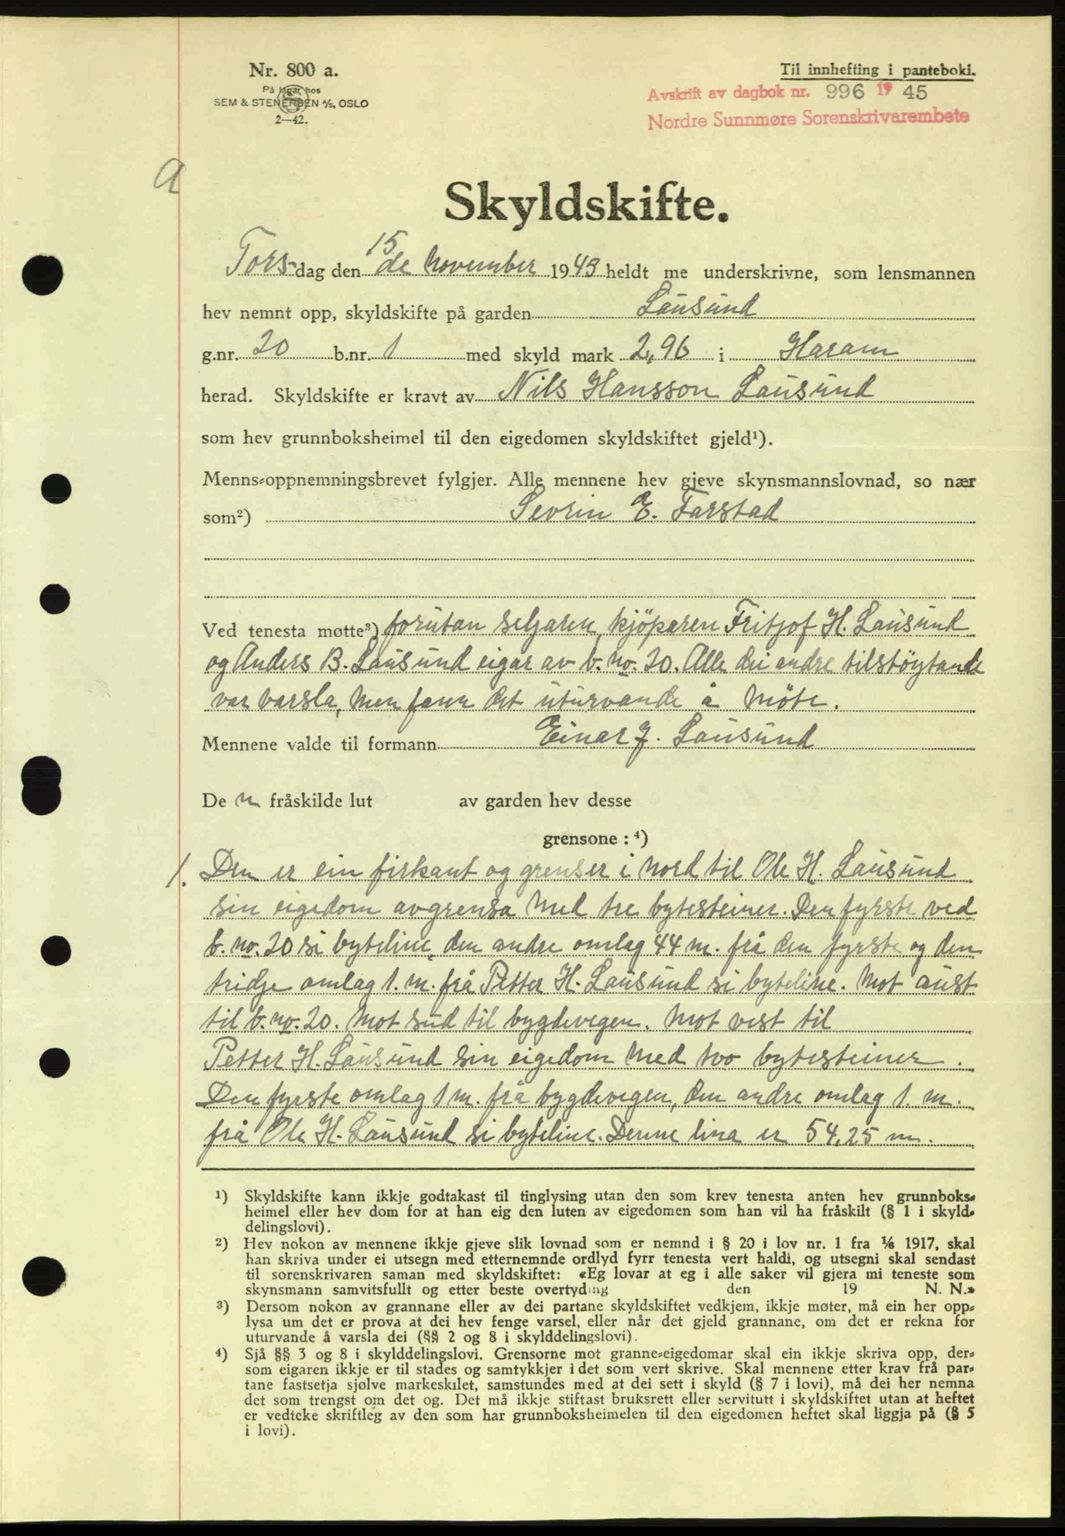 Nr. 800 a.
På lager hos
SEM & STENERSEN A/S, OSLO
2—42.
Til innhefting i panteboki.
Avskrift av dagbok nr. 996 19 45
Nordre Sunnmøre Sorenskrivarembete
a
Skyldskifte.
Torsdag den 15de November 1943 heldt me underskrivne, som lensmannen
hev nemnt opp, skyldskifte på garden Lausund
g.nr. 20 b.nr. 1 med skyld mark 2,96 i Haram
herad. Skyldskifte er kravt av Nils Hansson Lausund
som hev grunnboksheimel til den eigedomen skyldskiftet gjeld¹).
Menns-oppnemningsbrevet fylgjer. Alle mennene hev gjeve skynsmannslovnad, so nær
som²) Sevrin E. Farstad
Ved tenesta møtte³) forutan seljaren, kjöparen Fritjof H. Lausund
og Anders B. Lausund eigar av b. no. 20. Alle dei andre tilstöytande
var varsla, men fann det uturvande å möte.
Mennene valde til formann Einar J. Lausund
De n fråskilde lut av garden hev desse
grensone : ⁴)
1. Den er ein firkant og grenser i nord til Ole H. Lausund
sin eigedom avgrensa med tre bytesteiner. Den fyrste ved
b. no. 20 si byteline, den andre omlag 44 m. frå den fyrste og den
tridje omlag 1. m. frå Petter H. Lausund si byteline. Mot aust
til b. no. 20. Mot sud til bygdevegen. Mot vest til
Petter H. Lausund sin eigedom med two bytesteiner.
Den fyrste omlag 1 m. frå bygdevegen, den andre omlag 1. m.
frå Ole H. Lausund si byteline. Denne lina er 54,25 m.
¹) Skyldskifte kann ikkje godtakast til tinglysing utan den som krev tenesta anten hev grunnboks-
heimel eller hev dom for at han eig den luten av eigedomen som han vil ha fråskilt (§ 1 i skyld-
delingslovi).
²) Hev nokon av mennene ikkje gjeve slik lovnad som er nemnd i § 20 i lov nr. 1 fra 1/6 1917, skal
han skriva under ei utsegn med etternemnde ordlyd fyrr tenesta vert haldi, og utsegni skal sendast
til sorenskrivaren saman med skyldskiftet: «Eg lovar at eg i alle saker vil gjera mi teneste som
skynsmann samvitsfullt og etter beste overtyding den 19 N. N.»
³) Dersom nokon av grannane eller av dei partane skyldskiftet vedkjem, ikkje møter, må ein her opp-
lysa um det er prova at dei hev fenge varsel, eller når det gjeld grannane, om det er rekna for
uturvande å varsla dei (§§ 2 og 8 i skylddelingslovi).
⁴) Sjå §§ 3 og 8 i skylddelingslovi. Grensorne mot granne-eigedomar skal ein ikkje skriva opp, der-
som eigaren ikkje er til stades og samtykkjer i det som vert skrive. Skal mennene etter krav frå par-
tane fastsetja sjølve markeskilet, samstundes med at dei sett i skyld (§ 7 i lovi), må dei her nemna
det som trengst om det og. Det må ikkje stiftast bruksrett eller servitutt i skyldskiftet utan at heftet
er vedteke skriftleg av den som har grunnboksheimelen til den eigedomen heftet skal liggja på (§ 5
i lovi).